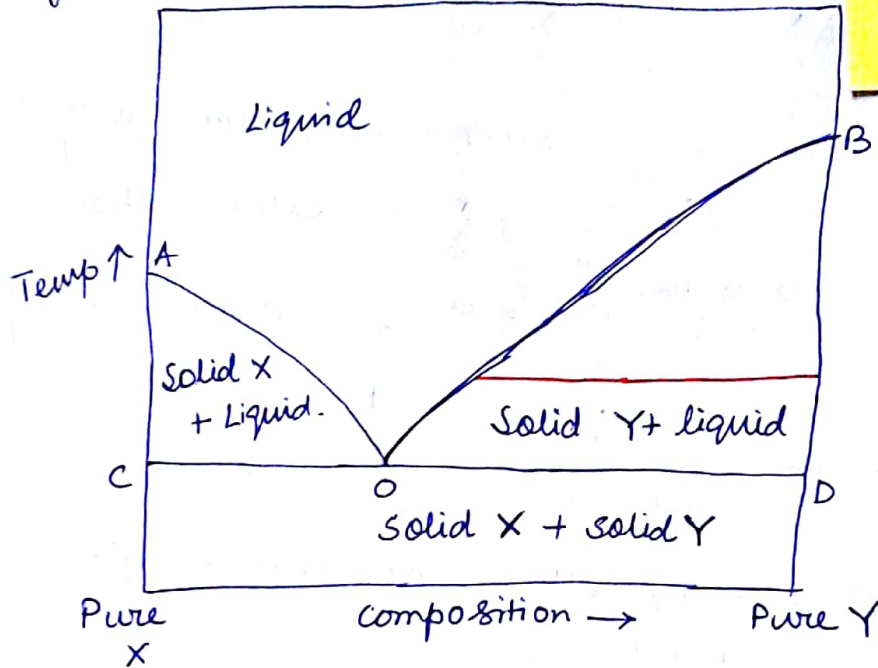 Liquid
B
Temp ↑
A
Solid X
+ Liquid.
Solid Y + liquid
C
O
D
Solid X + solid Y
Pure
X
composition →
Pure Y